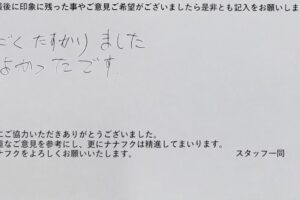 最後に印象に残った事やご意見ご希望がございましたら是非とも記入をお願いしま
ごく たすかりました
よかったです
にご協力いただきありがとうございました。
なご意見を参考にし、更にナナフクは精進してまいります。
ナフクをよろしくお願いいたします。 スタッフ一同